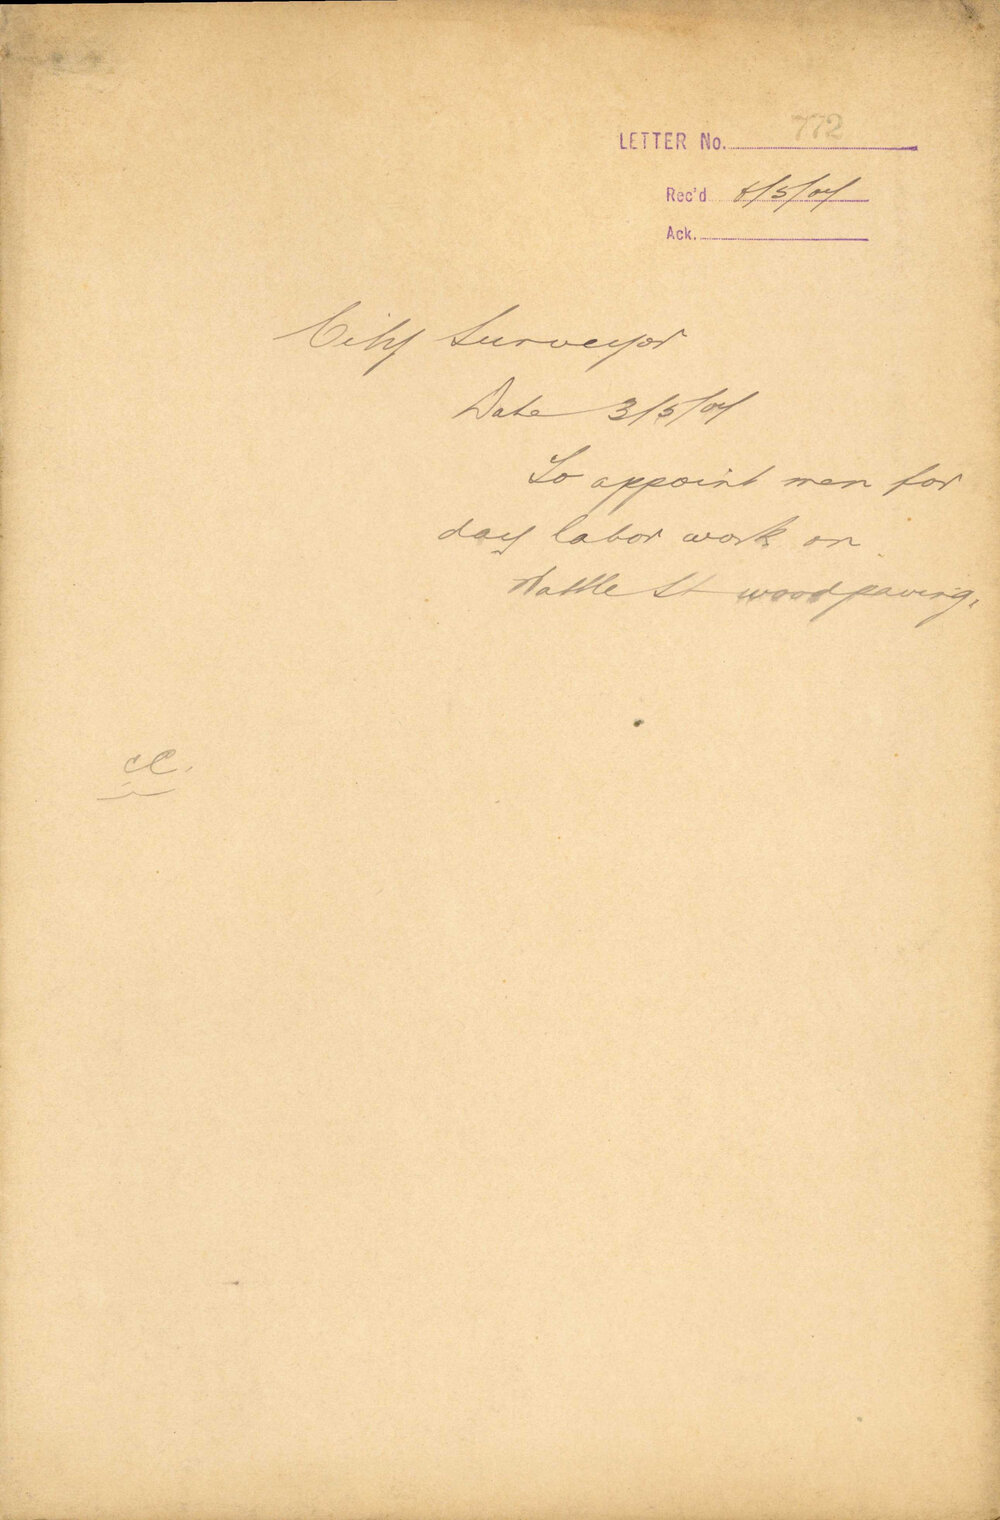 LETTER No. 772
Rec'd 8/5/07
Ack.
City Surveyor
Date 3/5/07
To appoint men for
day labor work on
Wattle St woodpaving.